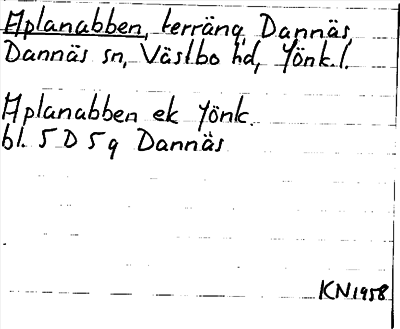 Aplanabben, terräng, Dannäs,
Dannäs sn, Västbo hd, Jönk.l.
Aplanabben ek Jönk.
bl. 5 D 5 g Dannäs
KN 1958